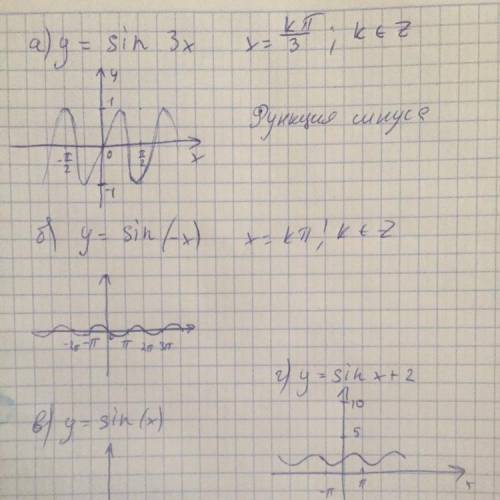 а) y = sin 3x   x = kπ/3 ; k ∈ Z
y
1
-π/2 0 π/2 x
-1
Функция синуса
б) y = sin (-x)   x = kπ ; k ∈ Z
-2π -π π 2π 3π
г) y = sin x + 2
10
5
-π π x
в) y = sin (x)